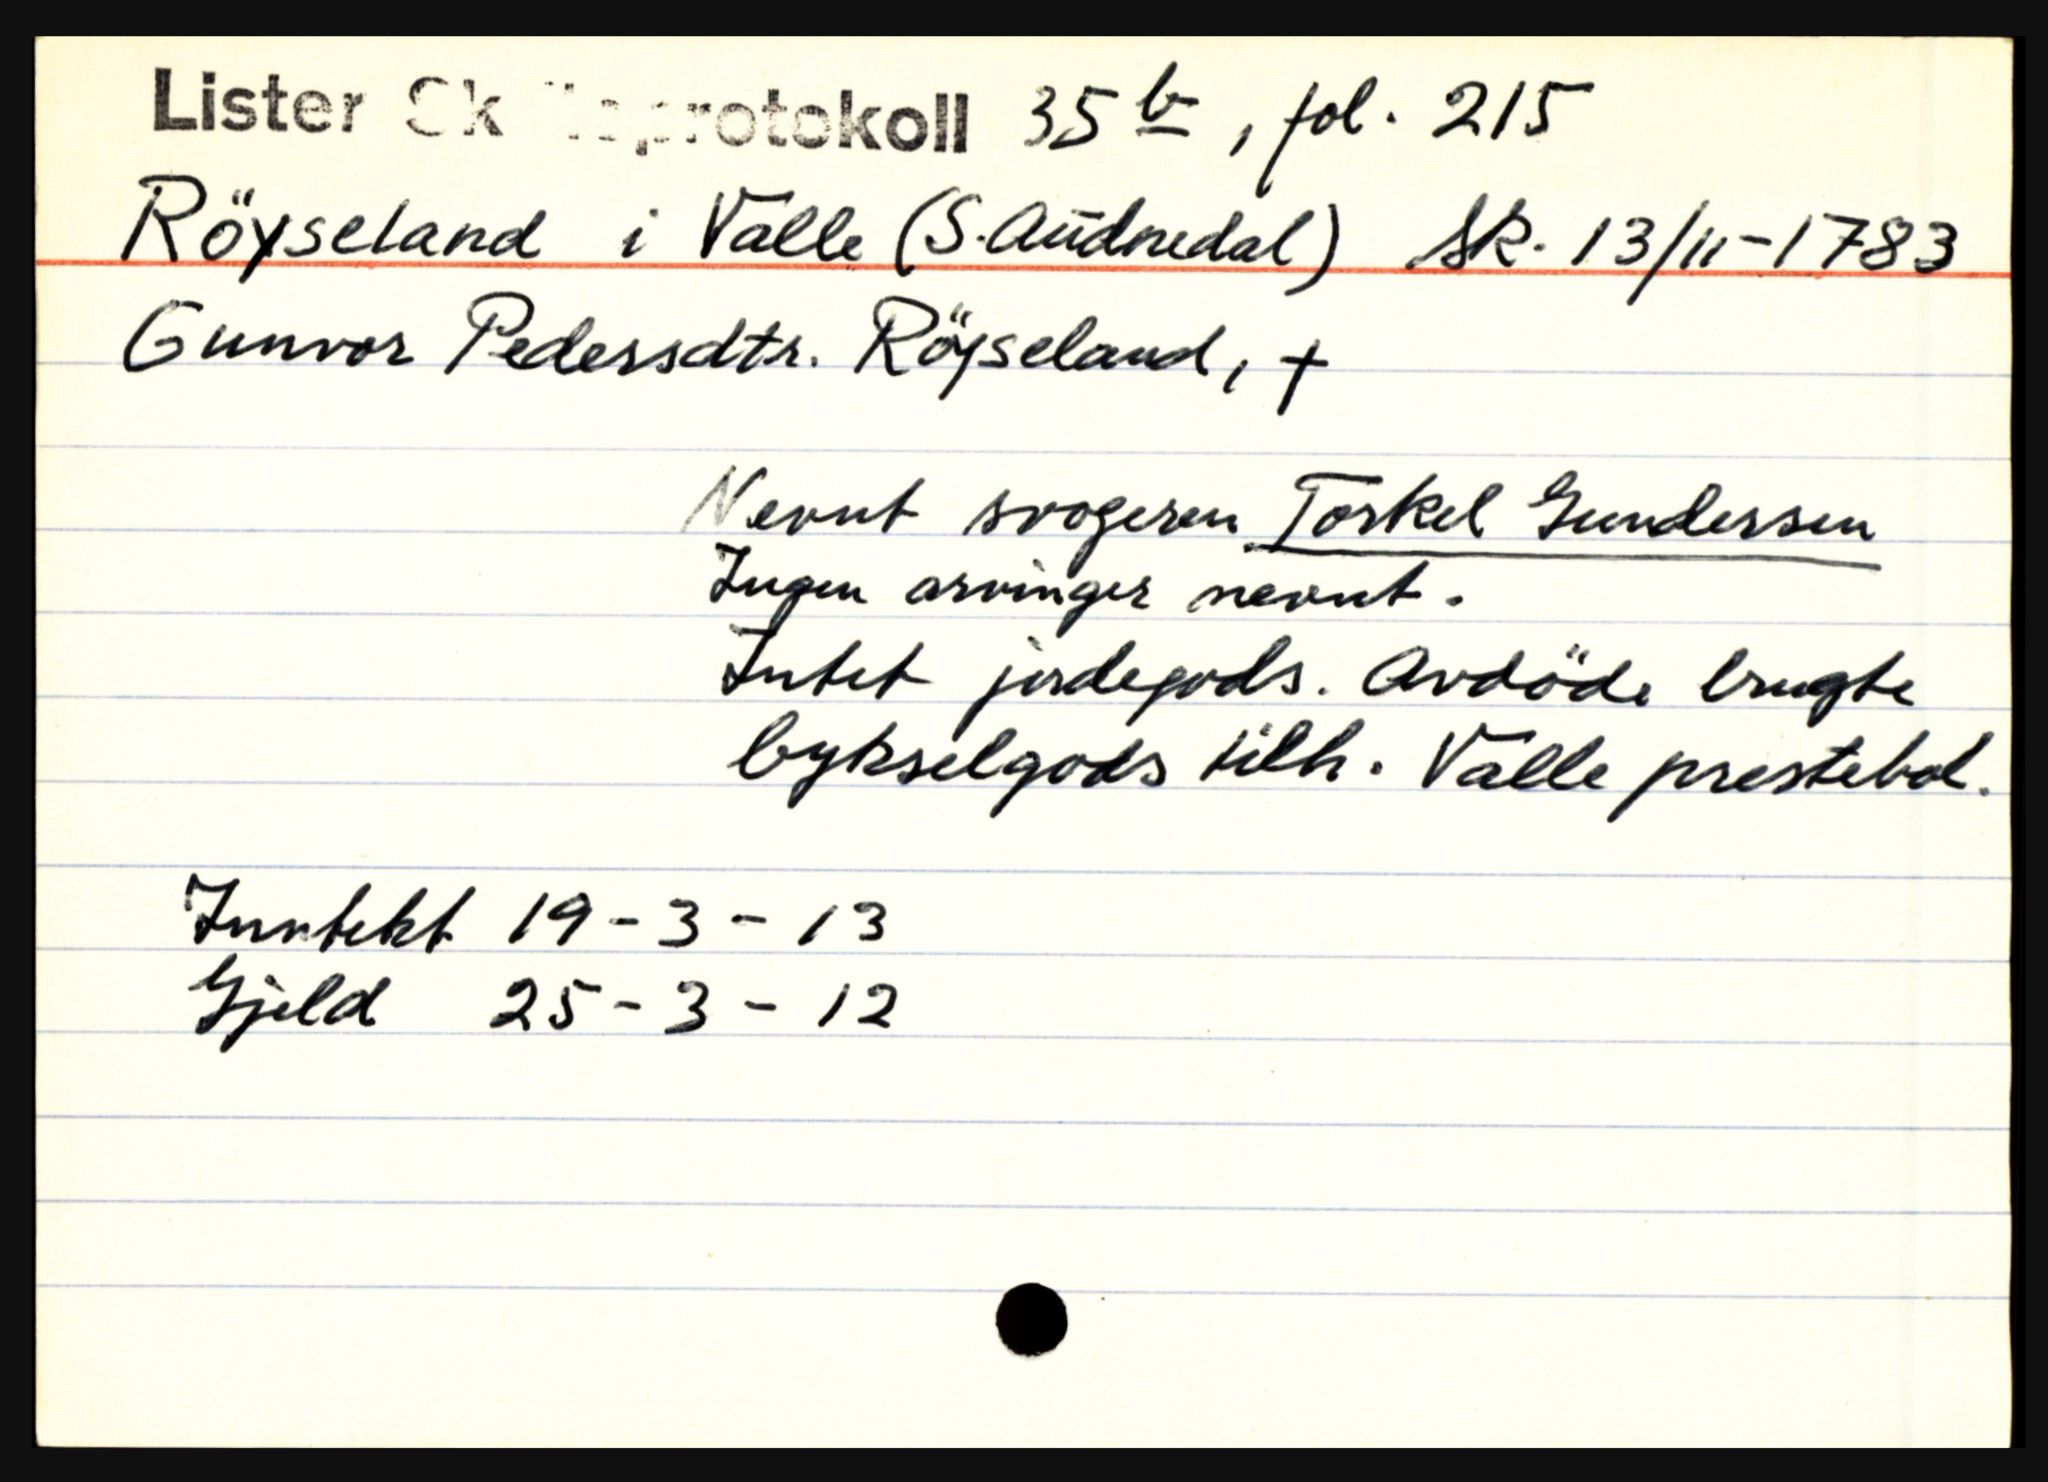 Lister Skifteprotokoll 35 b, fol. 215
Röyseland i Valle (S. Audnedal) Sk. 13/11-1783
Gunvor Pedersdtr. Röyseland, +
Nevnt svogeren Torkel Gundersen
Ingen arvinger nevnt.
Intet jordegods. Avdöde brugte
bykselgods tilh. Valle prestebol.
Inntekt 19-3-13
Gjeld 25-3-12